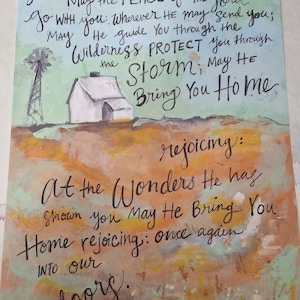 May the PEACE of the Lord
Go with you; Wherever He may Send you;
May He guide You through the
Wilderness PROTECT You through
the STORM; May He
Bring You Home
rejoicing:
at the Wonders He has
Shown you May He Bring You
Home rejoicing: once again
INTO our
doors.